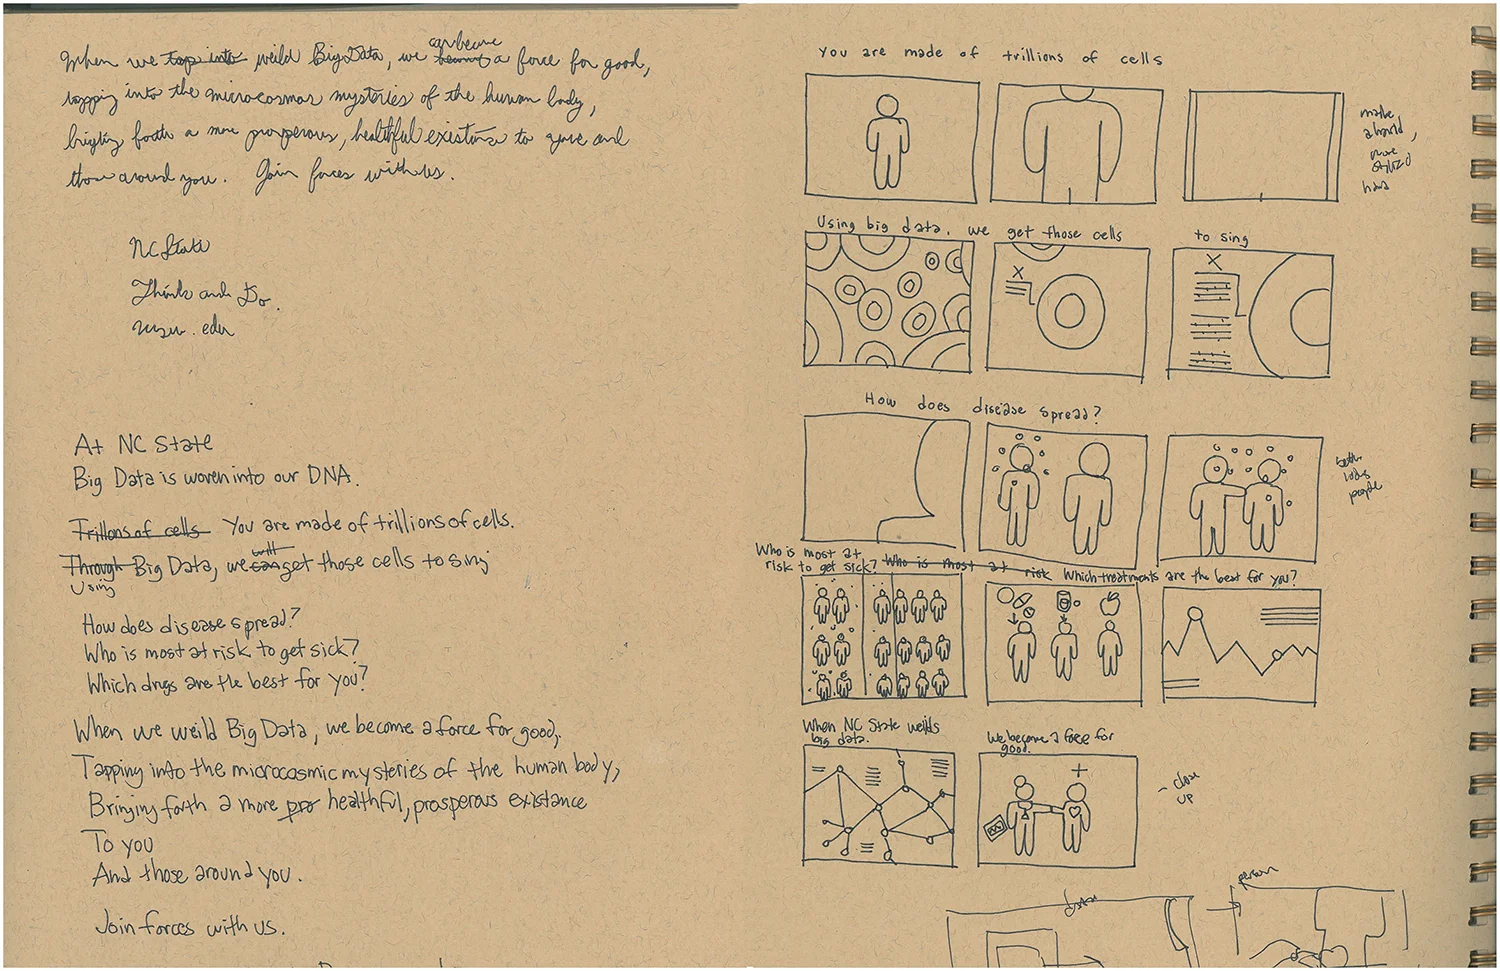 When we tap into weild Big Data, we can become becoming a force for good,
tapping into the microcosmos mysteries of the human body,
brigting forth a more prosperous, healthful existance to you and
those around you. Join forces with us.
NC State
Think and Do.
ncsu.edu
At NC State
Big Data is woven into our DNA.
Trillons of cells You are made of trillions of cells.
Through Using Big Data, we can will get those cells to sing
How does disease spread?
Who is most at risk to get sick?
Which drugs are the best for you?
When we weild Big Data, we become a force for good,
Tapping into the microcosmic mysteries of the human body,
Bringing forth a more pro healthful, prosperous existance
To you
And those around you.
Join forces with us.
You are made of trillions of cells
make
a hand,
more
stylized
Using big data, we get those cells to sing
X
X
How does disease spread?
people
Who is most at
risk to get sick? Who is most at risk Which treatments are the best for you?
When NC State weilds
big data.
We become a force for
good.
- close
up
person